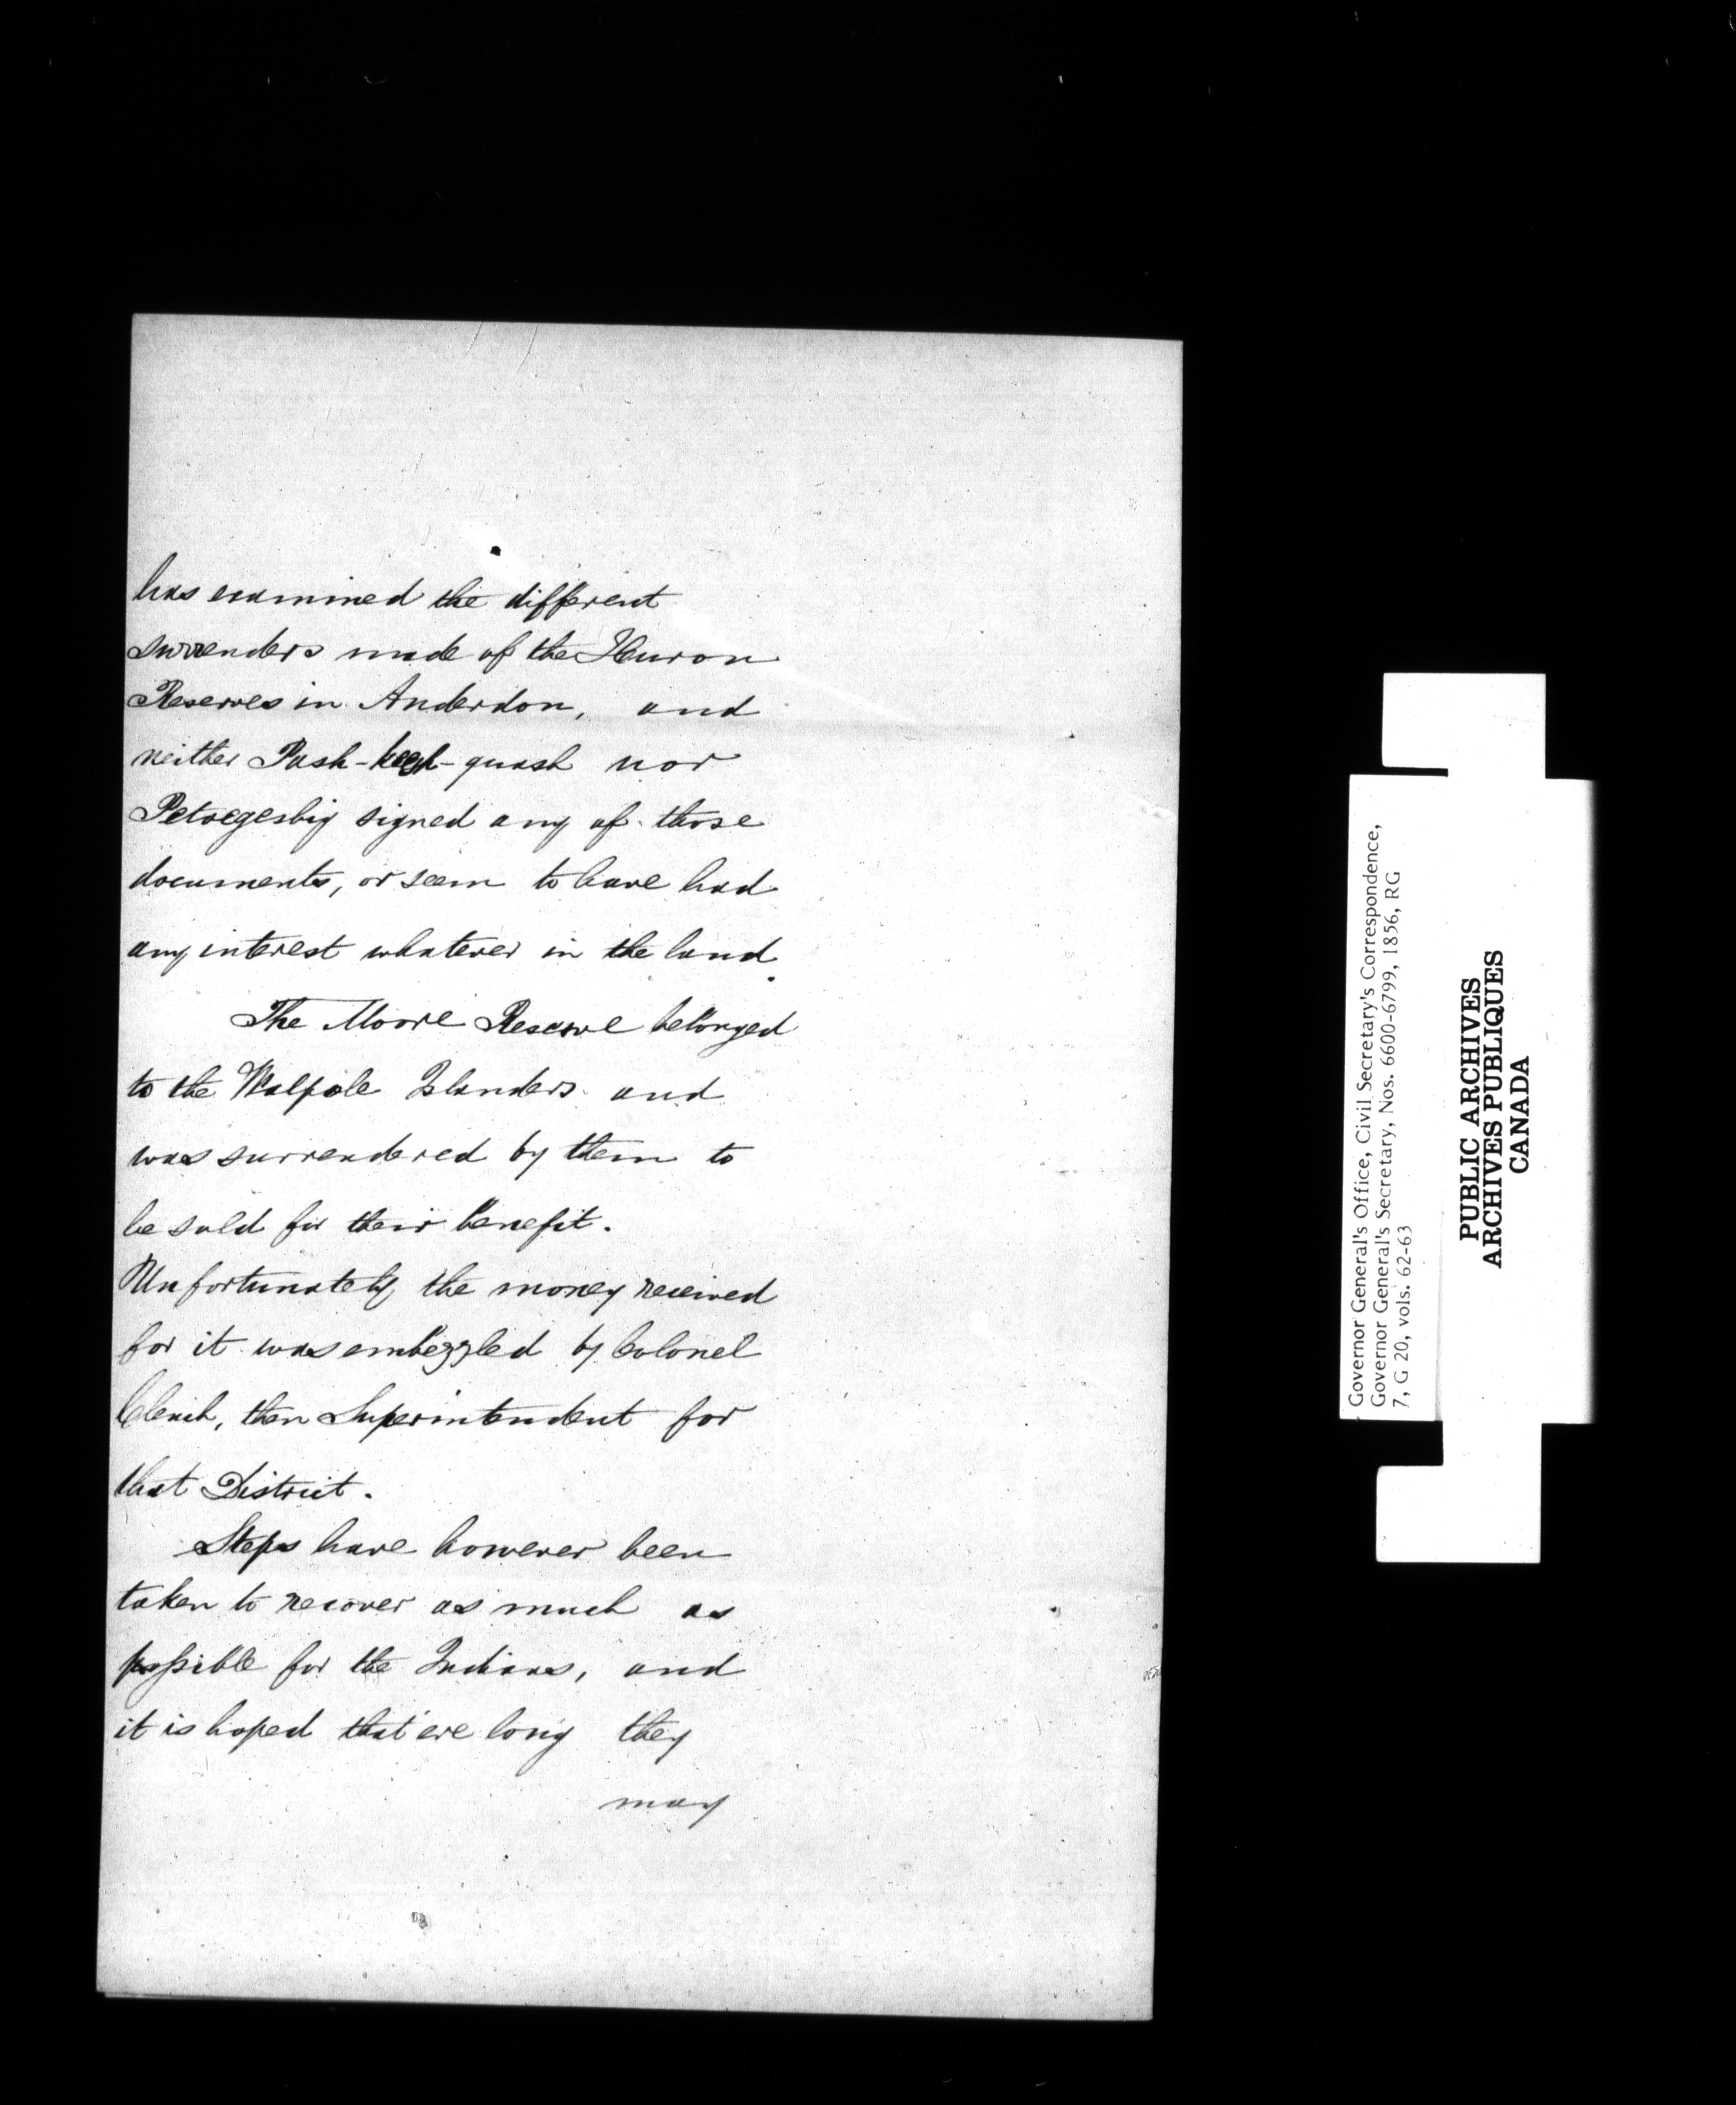 has examined the different
surrenders made of the Huron
Reserves in Anderdon, and
neither Pash-keesh-quash nor
Petwegeshig signed any of those
documents, or seem to have had
any interest whatever in the land.
The Moore Reserve belonged
to the Walpole Islanders and
was surrendered by them to
be sold for their benefit.
Unfortunately the money received
for it was embezzled by Colonel
Clench, then Superintendent for
that District.
Steps have however been
taken to recover as much as
possible for the Indians, and
it is hoped that ere long they
may
Governor General's Office, Civil Secretary's Correspondence,
Governor General's Secretary, Nos. 6600-6799, 1856, RG
7, G 20, vols. 62-63
PUBLIC ARCHIVES
ARCHIVES PUBLIQUES
CANADA